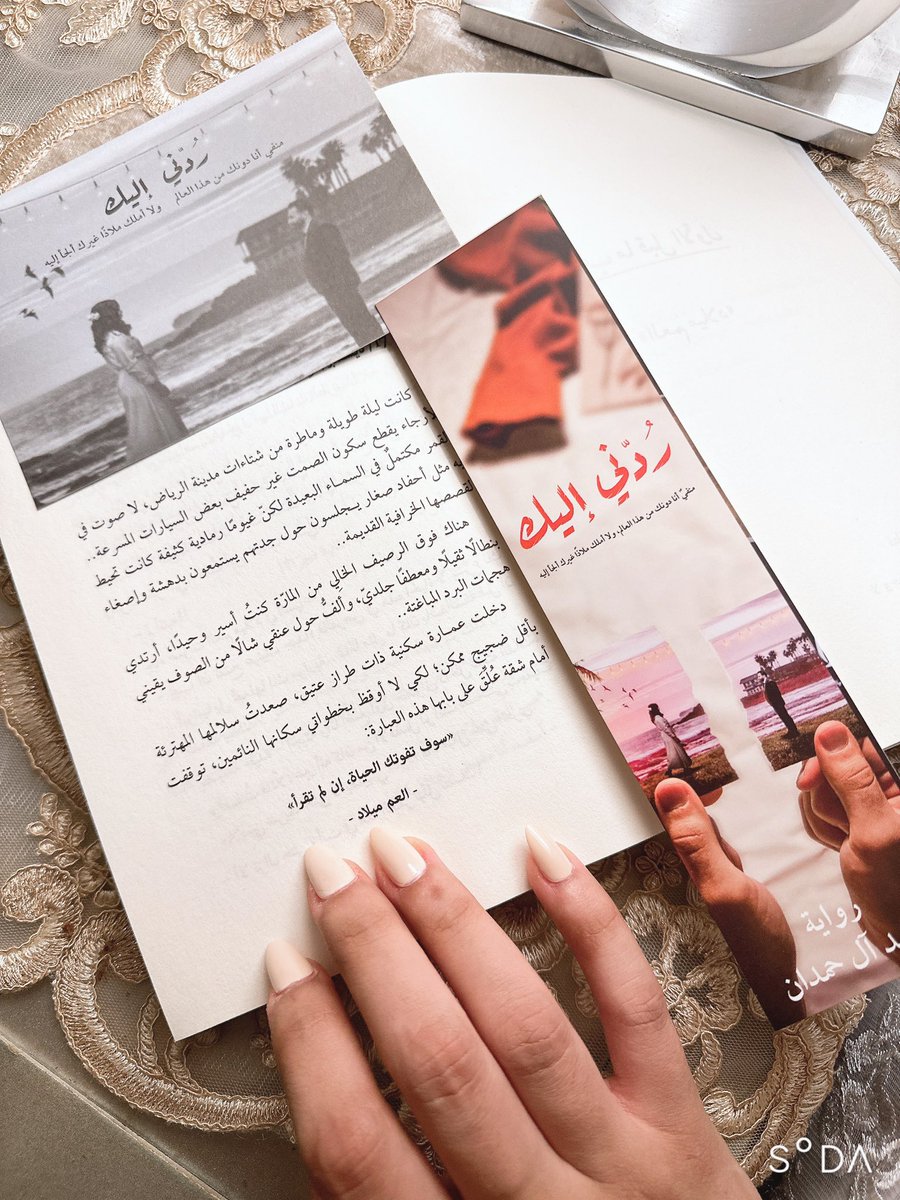 رُدّني إليك
منفي أنا دونك من هذا العالم
ولا أملك ملاذًا غيرك ألجأ إليه
كانت ليلة طويلة وماطرة من شتاءات مدينة الرياض، لا صوت في
لأرجاء يقطع سكون الصمت غير حفيف بعض السيارات المسرعة..
لقمر مكتملٌ في السماء البعيدة لكنّ غيومًا رمادية كثيفة كانت تحيط
به مثل أحفاد صغار يجلسون حول جدتهم يستمعون بدهشة وإصغاء
لقصصها الخرافية القديمة..
هناك فوق الرصيف الخالِي من المارّة كنتُ أسير وحيدًا، أرتدي
بنطالًا ثقيلًا ومعطفًا جلديّ، وألفُّ حول عنقي شالًا من الصوف يقيني
هجمات البرد المباغتة..
دخلت عمارة سكنية ذات طراز عتيق، صعدتُ سلالمها المهترئة
بأقل ضجيج ممكن؛ لكي لا أوقظ بخطواتي سكانها النائمين، توقفت
أمام شقة عُلِّق على بابها هذه العبارة:
«سوف تفوتك الحياة، إن لم تقرأ»
- العم ميلاد -
رُدّني إليك
منفيّ أنا دونك من هذا العالم، ولا أملك ملاذًا غيرك ألجأ إليه
رواية
د آل حمدان
SODA